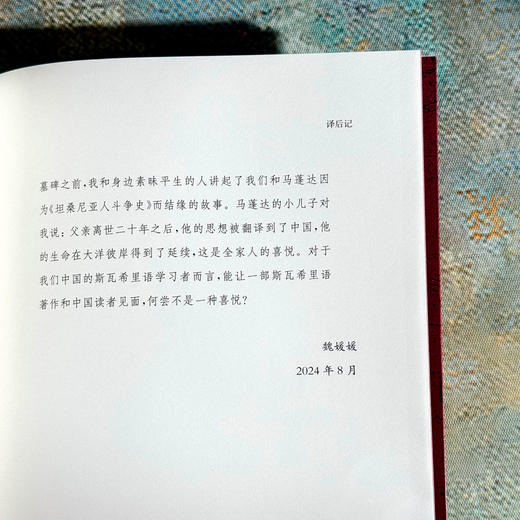 译后记
墓碑之前，我和身边素昧平生的人讲起了我们和马蓬达因
为《坦桑尼亚人斗争史》而结缘的故事。马蓬达的小儿子对
我说：父亲离世二十年之后，他的思想被翻译到了中国，他
的生命在大洋彼岸得到了延续，这是全家人的喜悦。对于
我们中国的斯瓦希里语学习者而言，能让一部斯瓦希里语
著作和中国读者见面，何尝不是一种喜悦？
魏媛媛
2024 年 8 月